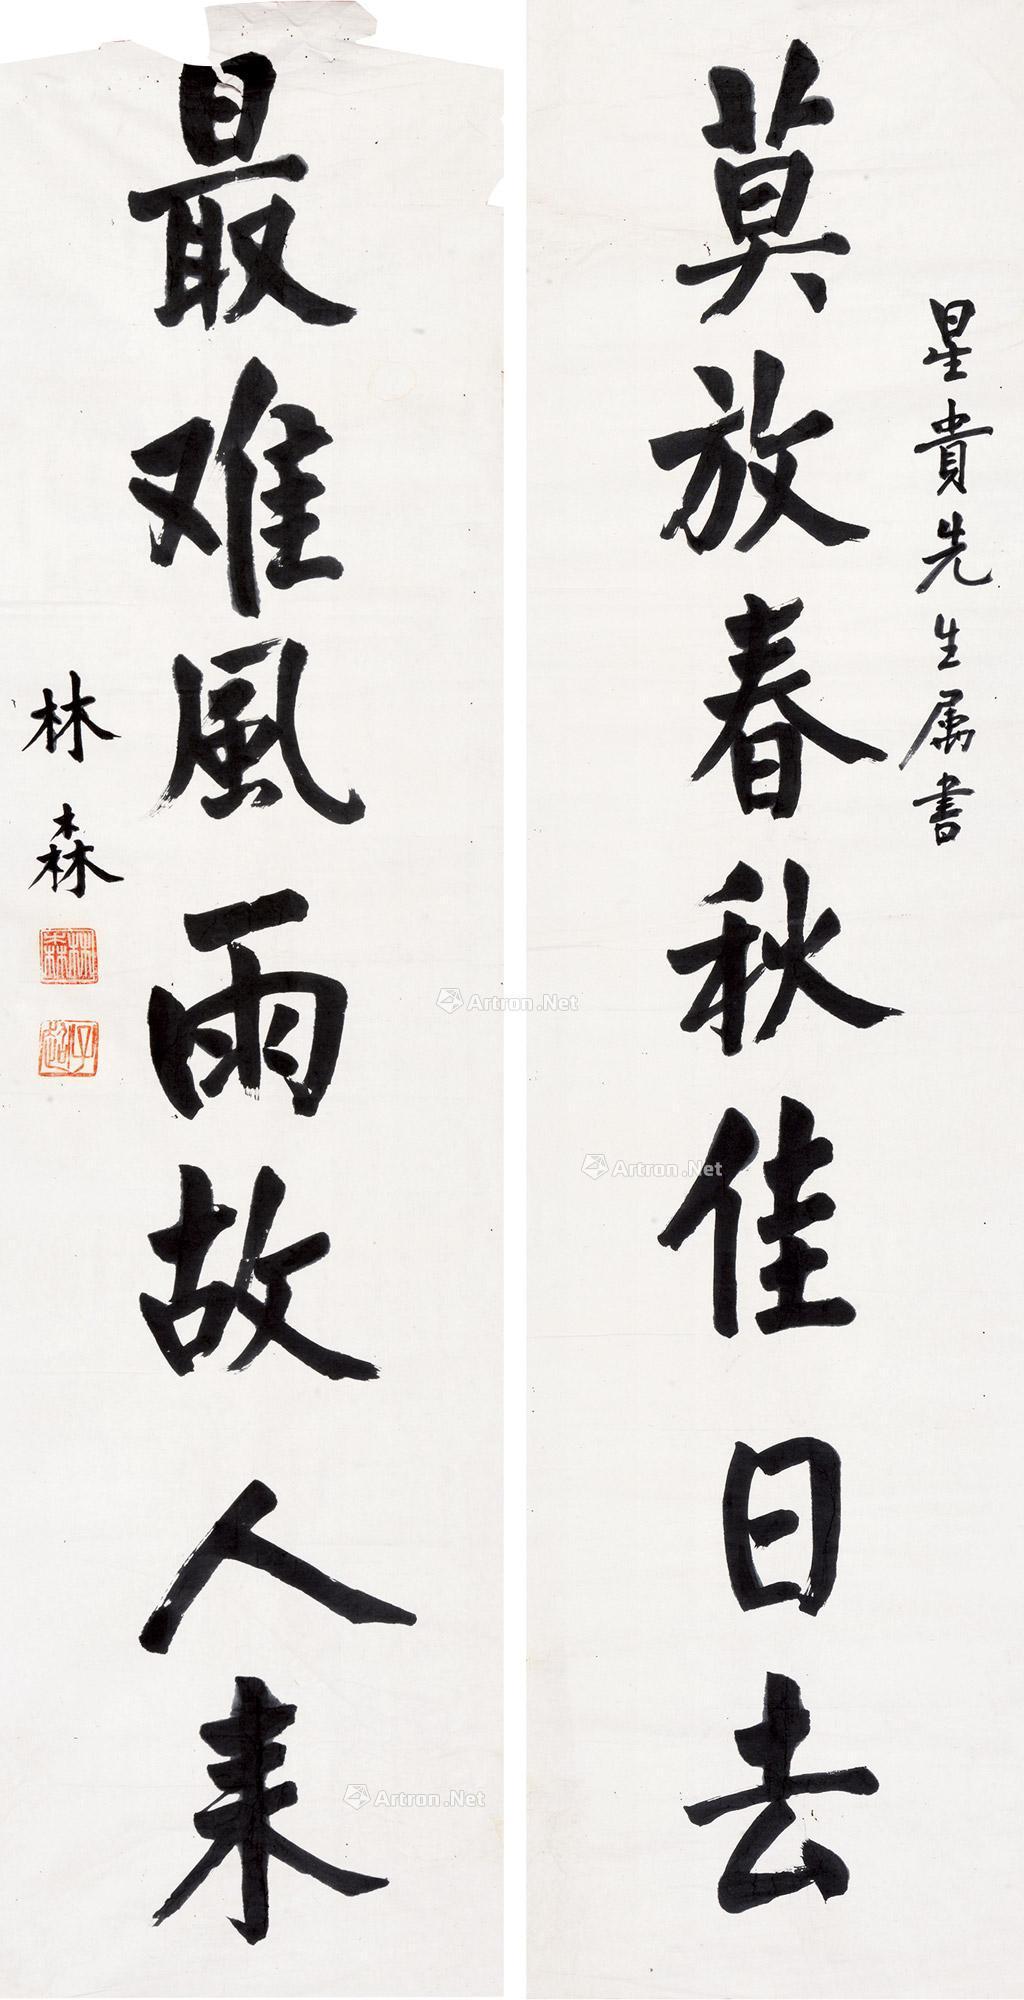 莫放春秋佳日去
星貴先生属书
最难風雨故人来
林森
林森
子超
Artron.Net
Artron.Net
Artron.Net